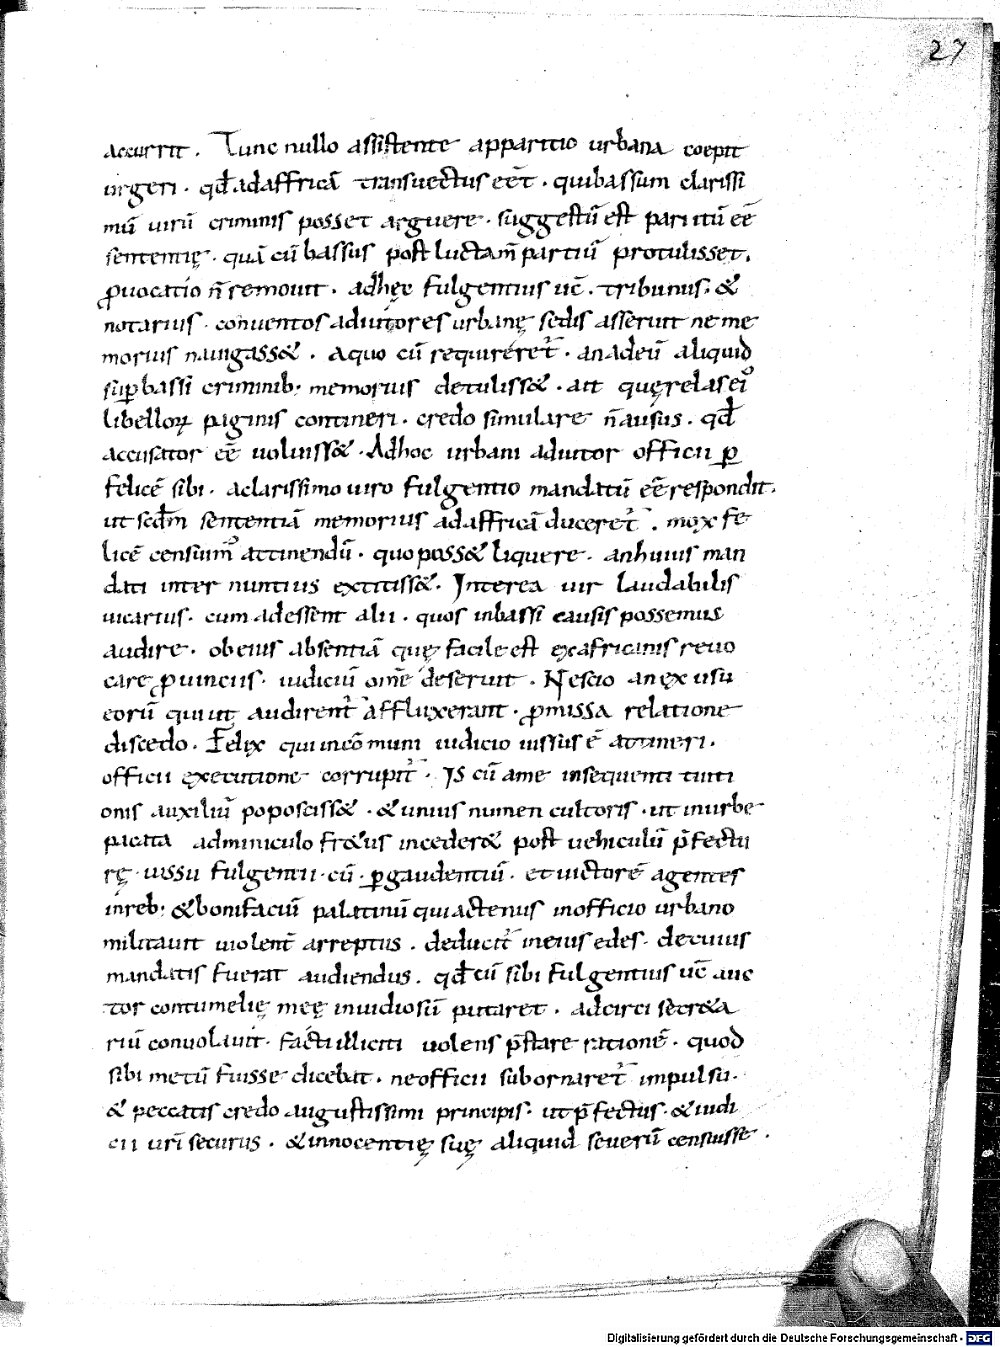 27
accurrit. Tunc nullo assistente apparitio urbana coepit
urgeri. qđ adaffricā transuectus eēt. quibassum clarissi
mū uirū criminis posset arguere. suggestū est paritū eē
sententię. quā cū bassus post luctam̄ partiū protulisset.
ꝓuocatio n̄ remouit. adhęc fulgentius uc̄. tribunus. &
notarius. conuentos adiutores urbanę sedis asserit ne me
morius nauigass&. Aquo cū requireret᷑. anadeū aliquid
sup̱bassi criminib; memorius detuliss&. ait quęrelas ei᷒
libellorꝝ paginis contineri. credo simulare n̄ ausus. qđ
accusator eē uoluiss&. Adhoc urbani adiutor officii ꝑ
felicē sibi. aclarissimo uiro fulgentio mandatū eē respondit.
ut scđm sententiā memorius adaffricā duceret᷑. mox fe
licē censuim᷒ attinendū. quo poss& liquere. anhuius man
dati inter nuntius extitiss&. Interea uir laudabilis
uicarius. cum adessent alii. quos inbassi causis possemus
audire. ob eius absentiā quę facile est exafricanis reuo
care ꝓuinciis. iudiciū om̄e deseruit. Nescio an ex usu
eorū qui ut audirent᷑ affluxerant. ꝓmissa relatione
discedo. Felix qui incōmuni iudicio iussus ē attineri.
officii executione corrupit᷑. Is cū ame insequenti tuiti
onis auxiliū poposciss&. & unius numen cultoris. ut inurbe
pacata adminiculo fr&us inceder& post uehiculū p̄fectu
rę. iussu fulgentii. cū. ꝑgaudentiū. et uictorē agentes
inreb; & bonifaciū palatinū qui actenus inofficio urbano
militauit uiolent̄ arreptus. deducit᷑ ineius edes. decuius
mandatis fuerat audiendus. qđ cū sibi fulgentius uc̄ auc
tor contumelię meę inuidiosū putaret. adcirci secr&a
riū conuolauit. facti illiciti uolens p̄stare rationē. quod
sibi metū fuisse dicebat. neofficii subornaret᷑ impulsu.
& peccatis credo augustissimi principis. ut p̄fectus. & iudi
cii uri securus. & innocentię suę aliquid seuerū censuisse.
Digitalisierung gefördert durch die Deutsche Forschungsgemeinschaft - DFG